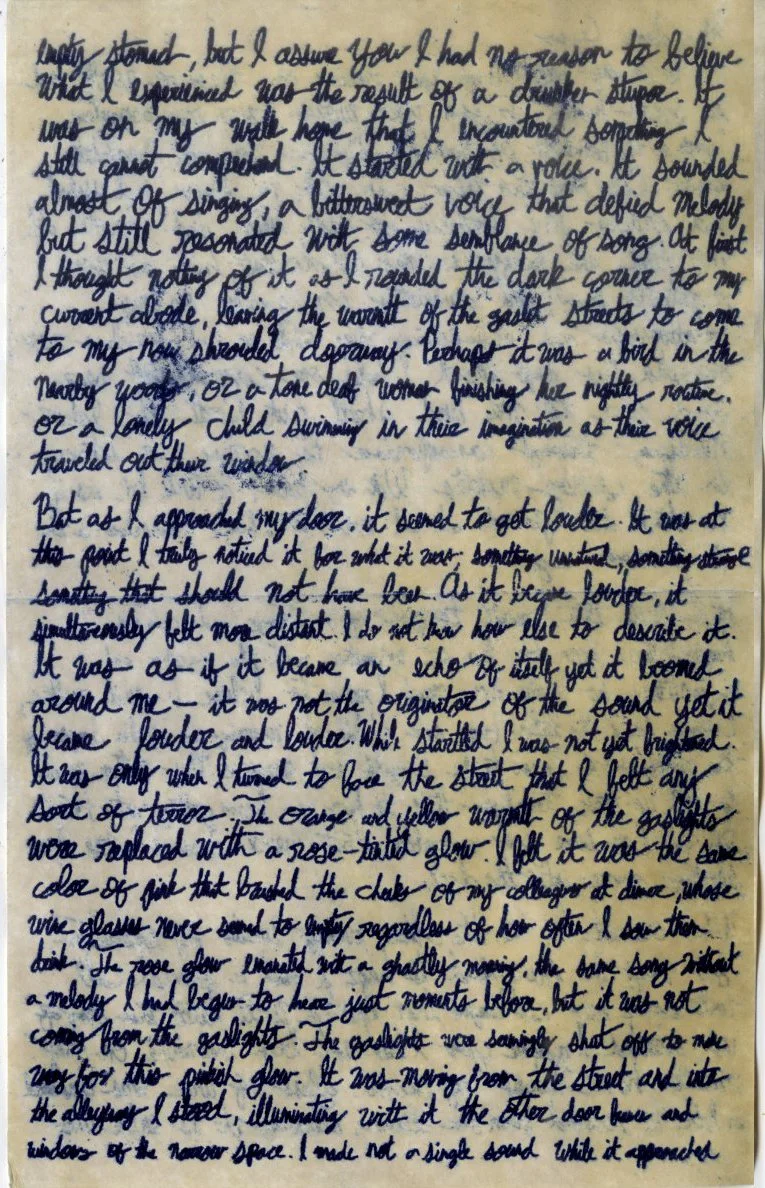 empty stomach, but I assure you I had no reason to believe
what I experienced was the result of a drunken stupor. It
was on my walk home that I encountered something I
still cannot comprehend. It started with a voice. It sounded
almost of singing, a bittersweet voice that defied melody
but still resonated with some semblance of song. At first
I thought nothing of it as I rounded the dark corner to my
current abode, leaving the warmth of the gaslit streets to come
to my now shrouded doorway. Perhaps it was a bird in the
nearby woods, or a tone deaf woman finishing her nightly routine,
or a lonely child swimming in their imagination as their voice
traveled out their window
But as I approached my door, it seemed to get louder. It was at
this point I truly noticed it for what it was, something unnatural, something strange
something that should not have been. As it became louder, it
simultaneously felt more distant. I do not know how else to describe it.
It was as if it became an echo of itself yet it boomed
around me — it was not the originator of the sound yet it
became louder and louder. While startled I was not yet frightened.
It was only when I turned to face the street that I felt any
sort of terror. The orange and yellow warmth of the gaslights
were replaced with a rose-tinted glow. I felt it was the same
color of pink that brushed the cheeks of my colleagues at dinner, whose
wine glasses never seemed to empty regardless of how often I saw them
drink. The rose glow emanated with a ghastly moving, the same song without
a melody I had begun to hear just moments before, but it was not
coming from the gaslights. The gaslights were seemingly shut off to make
way for this pinkish glow. It was moving from the street and into
the alleyway I stood, illuminating with it the other door and
windows of the narrow space. I made not a single sound while it approached